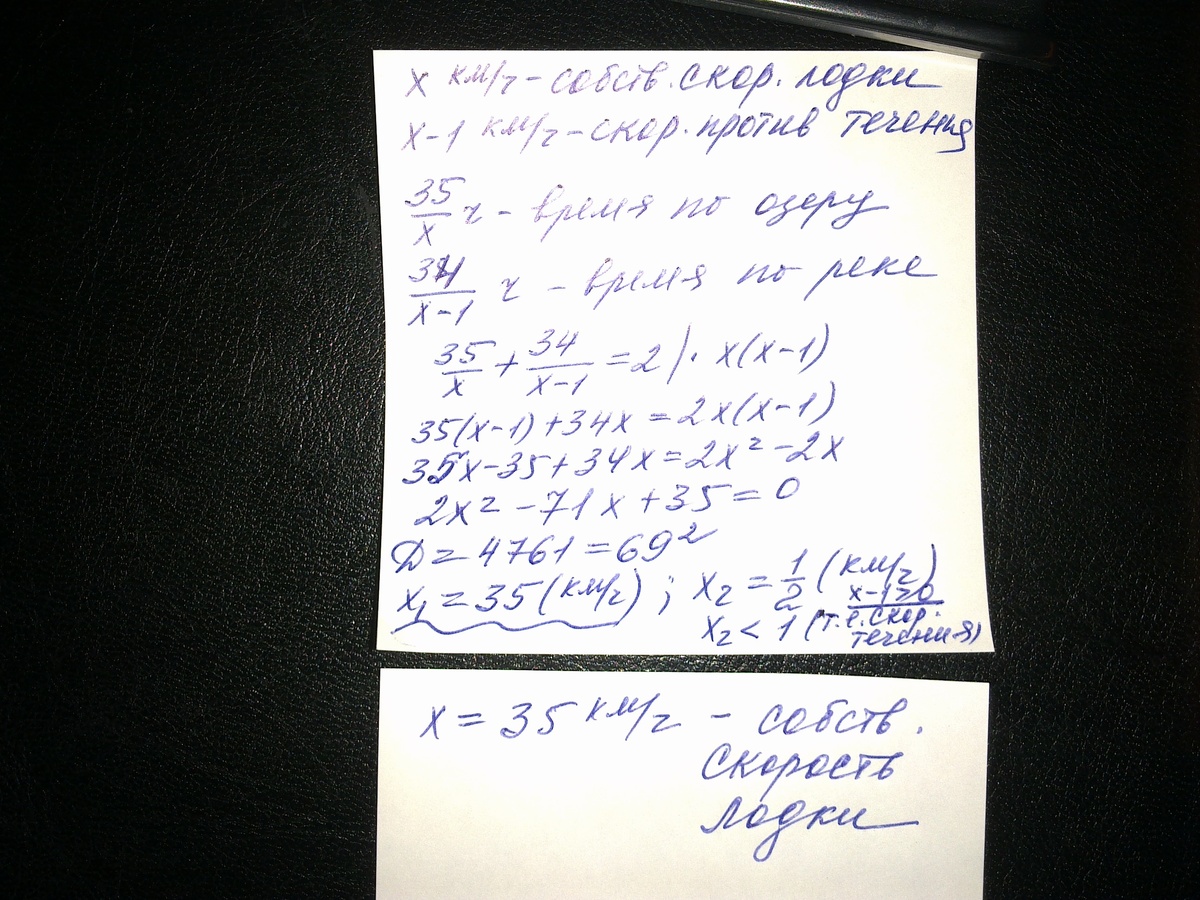 x км/ч - собств. скор. лодки
x-1 км/ч - скор. против течения
35/x ч - время по озеру
34/(x-1) ч - время по реке
35/x + 34/(x-1) = 2 | · x(x-1)
35(x-1)+34x = 2x(x-1)
35x-35+34x = 2x² - 2x
2x² - 71x + 35 = 0
D = 4761 = 69²
x₁ = 35 (км/ч) ; x₂ = 1/2 (км/ч)
x-1>0
x₂ < 1 (т.е. скор. течения)
x = 35 км/ч - собств.
скорость
лодки